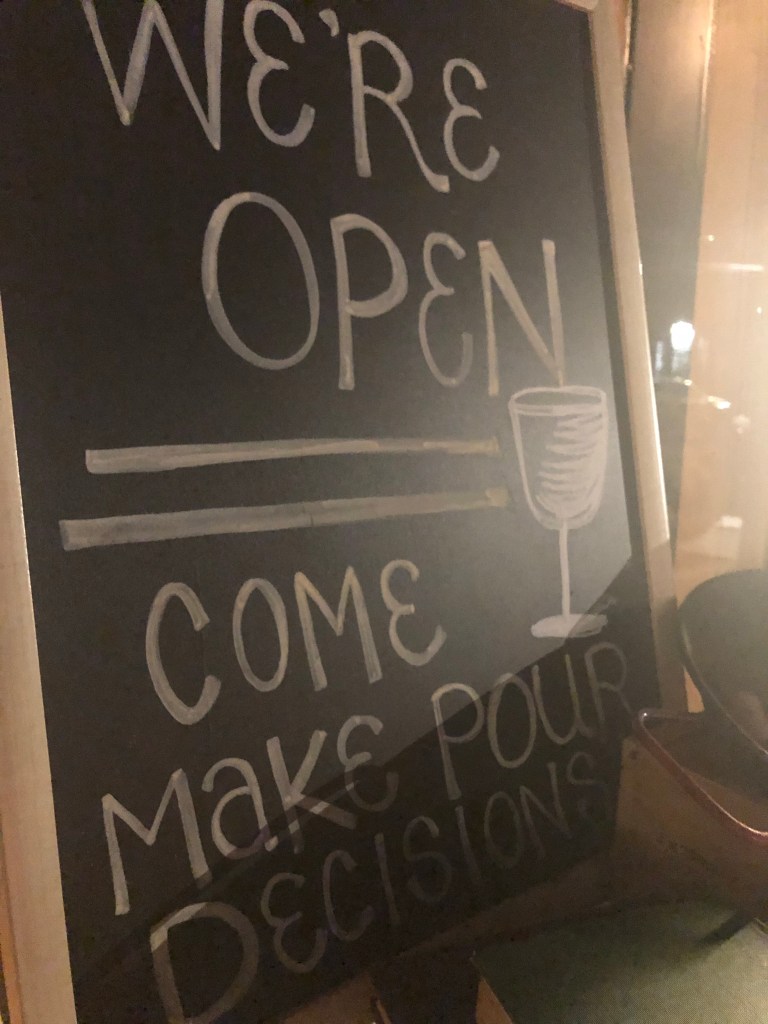 WE'RE
OPEN
COME
MaKE POUR
DECISIONS